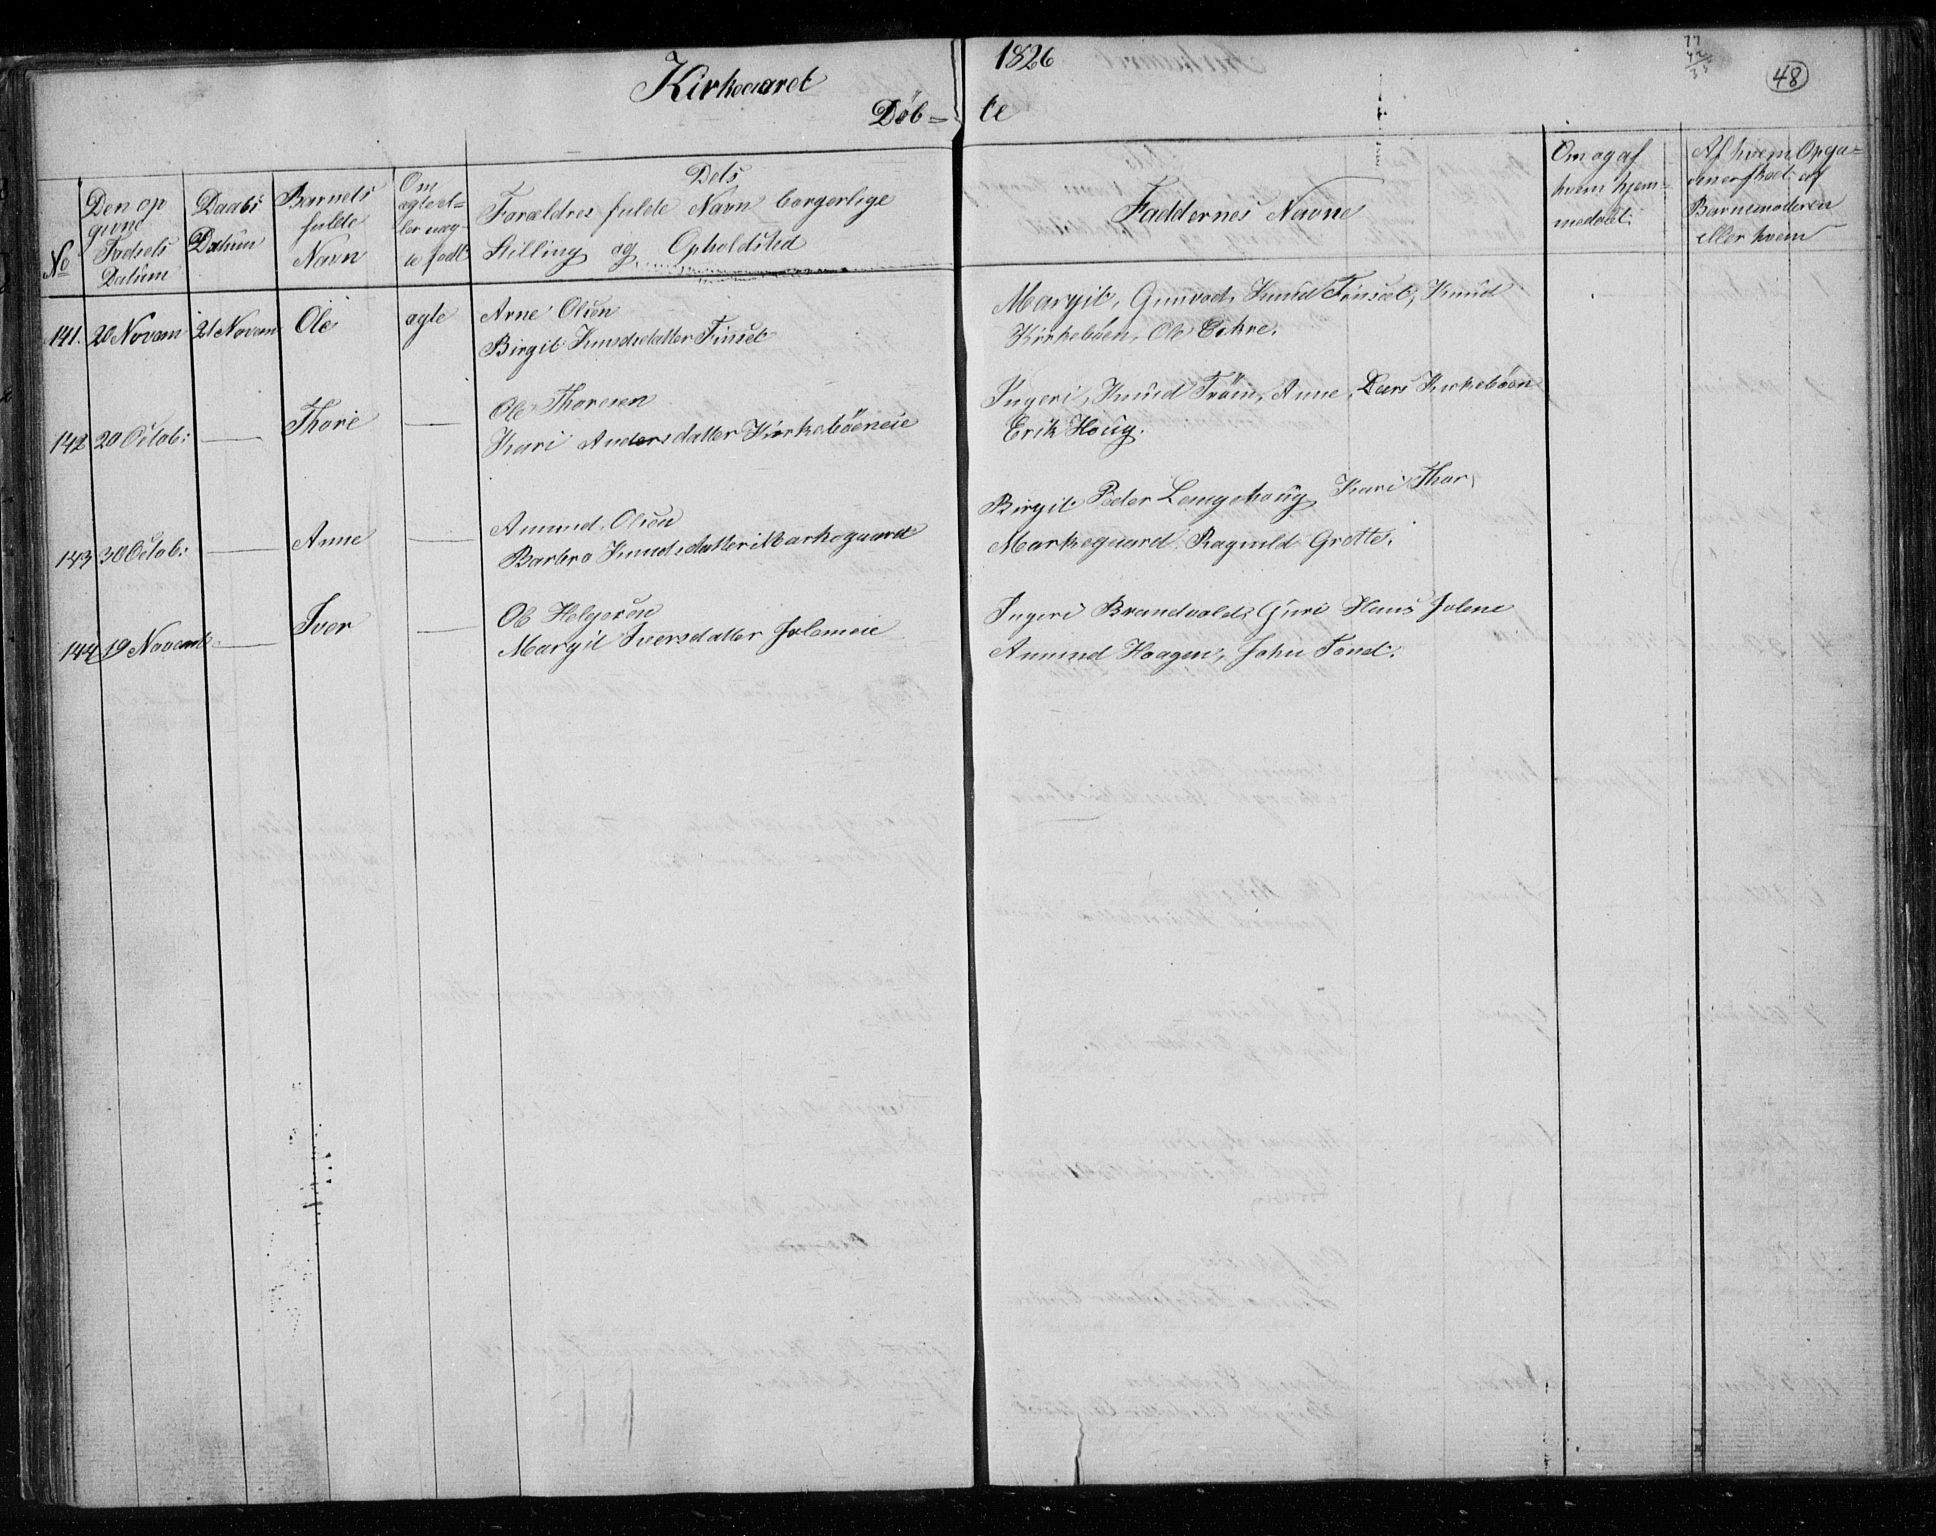 Kirkeaaret 1826
48
Döb= te
No
Den op
givne
Födsels
Datum
Daabs
Datum
Barnets
fulde
Navn
Om
ægte el=
ler uæg-
te födt
Dets
Forældres fulde Navn borgerlige
Stilling og Opholdsted
Faddernes Navne
Om og af
hvem hjem=
medöbt
Af hvem Opga=
ven er skeet af
Barnemoderen
eller hvem
141. 20 Novem 21 Novem Ole ægte Arne Olsen
Birgit Knudsdatter Finset
Margit, Gunvod, Knud Finset, Knud
Kirkebøen, Ole Eikre.
142 20 Octob: — Thore — Ole Thoresen
Kari Andersdatter Kirkebøeneie
Ingeri, Knud Tröim, Anne, Lars Kirkebøen
Erik Houg.
143 30 Octob: — Anne — Amund Olsen
Barbro Knudsdatter Markegaard
Birgit Peder Langehoug Kari Thor
Markegaard Ragnild Grotte.
144 19 Novemb — Iver — Ole Helgesen
Margit Iversdatter Jolemeie
Ingeri Brandvold, Guri Hans Joleme
Amund Haagen, John Tond.